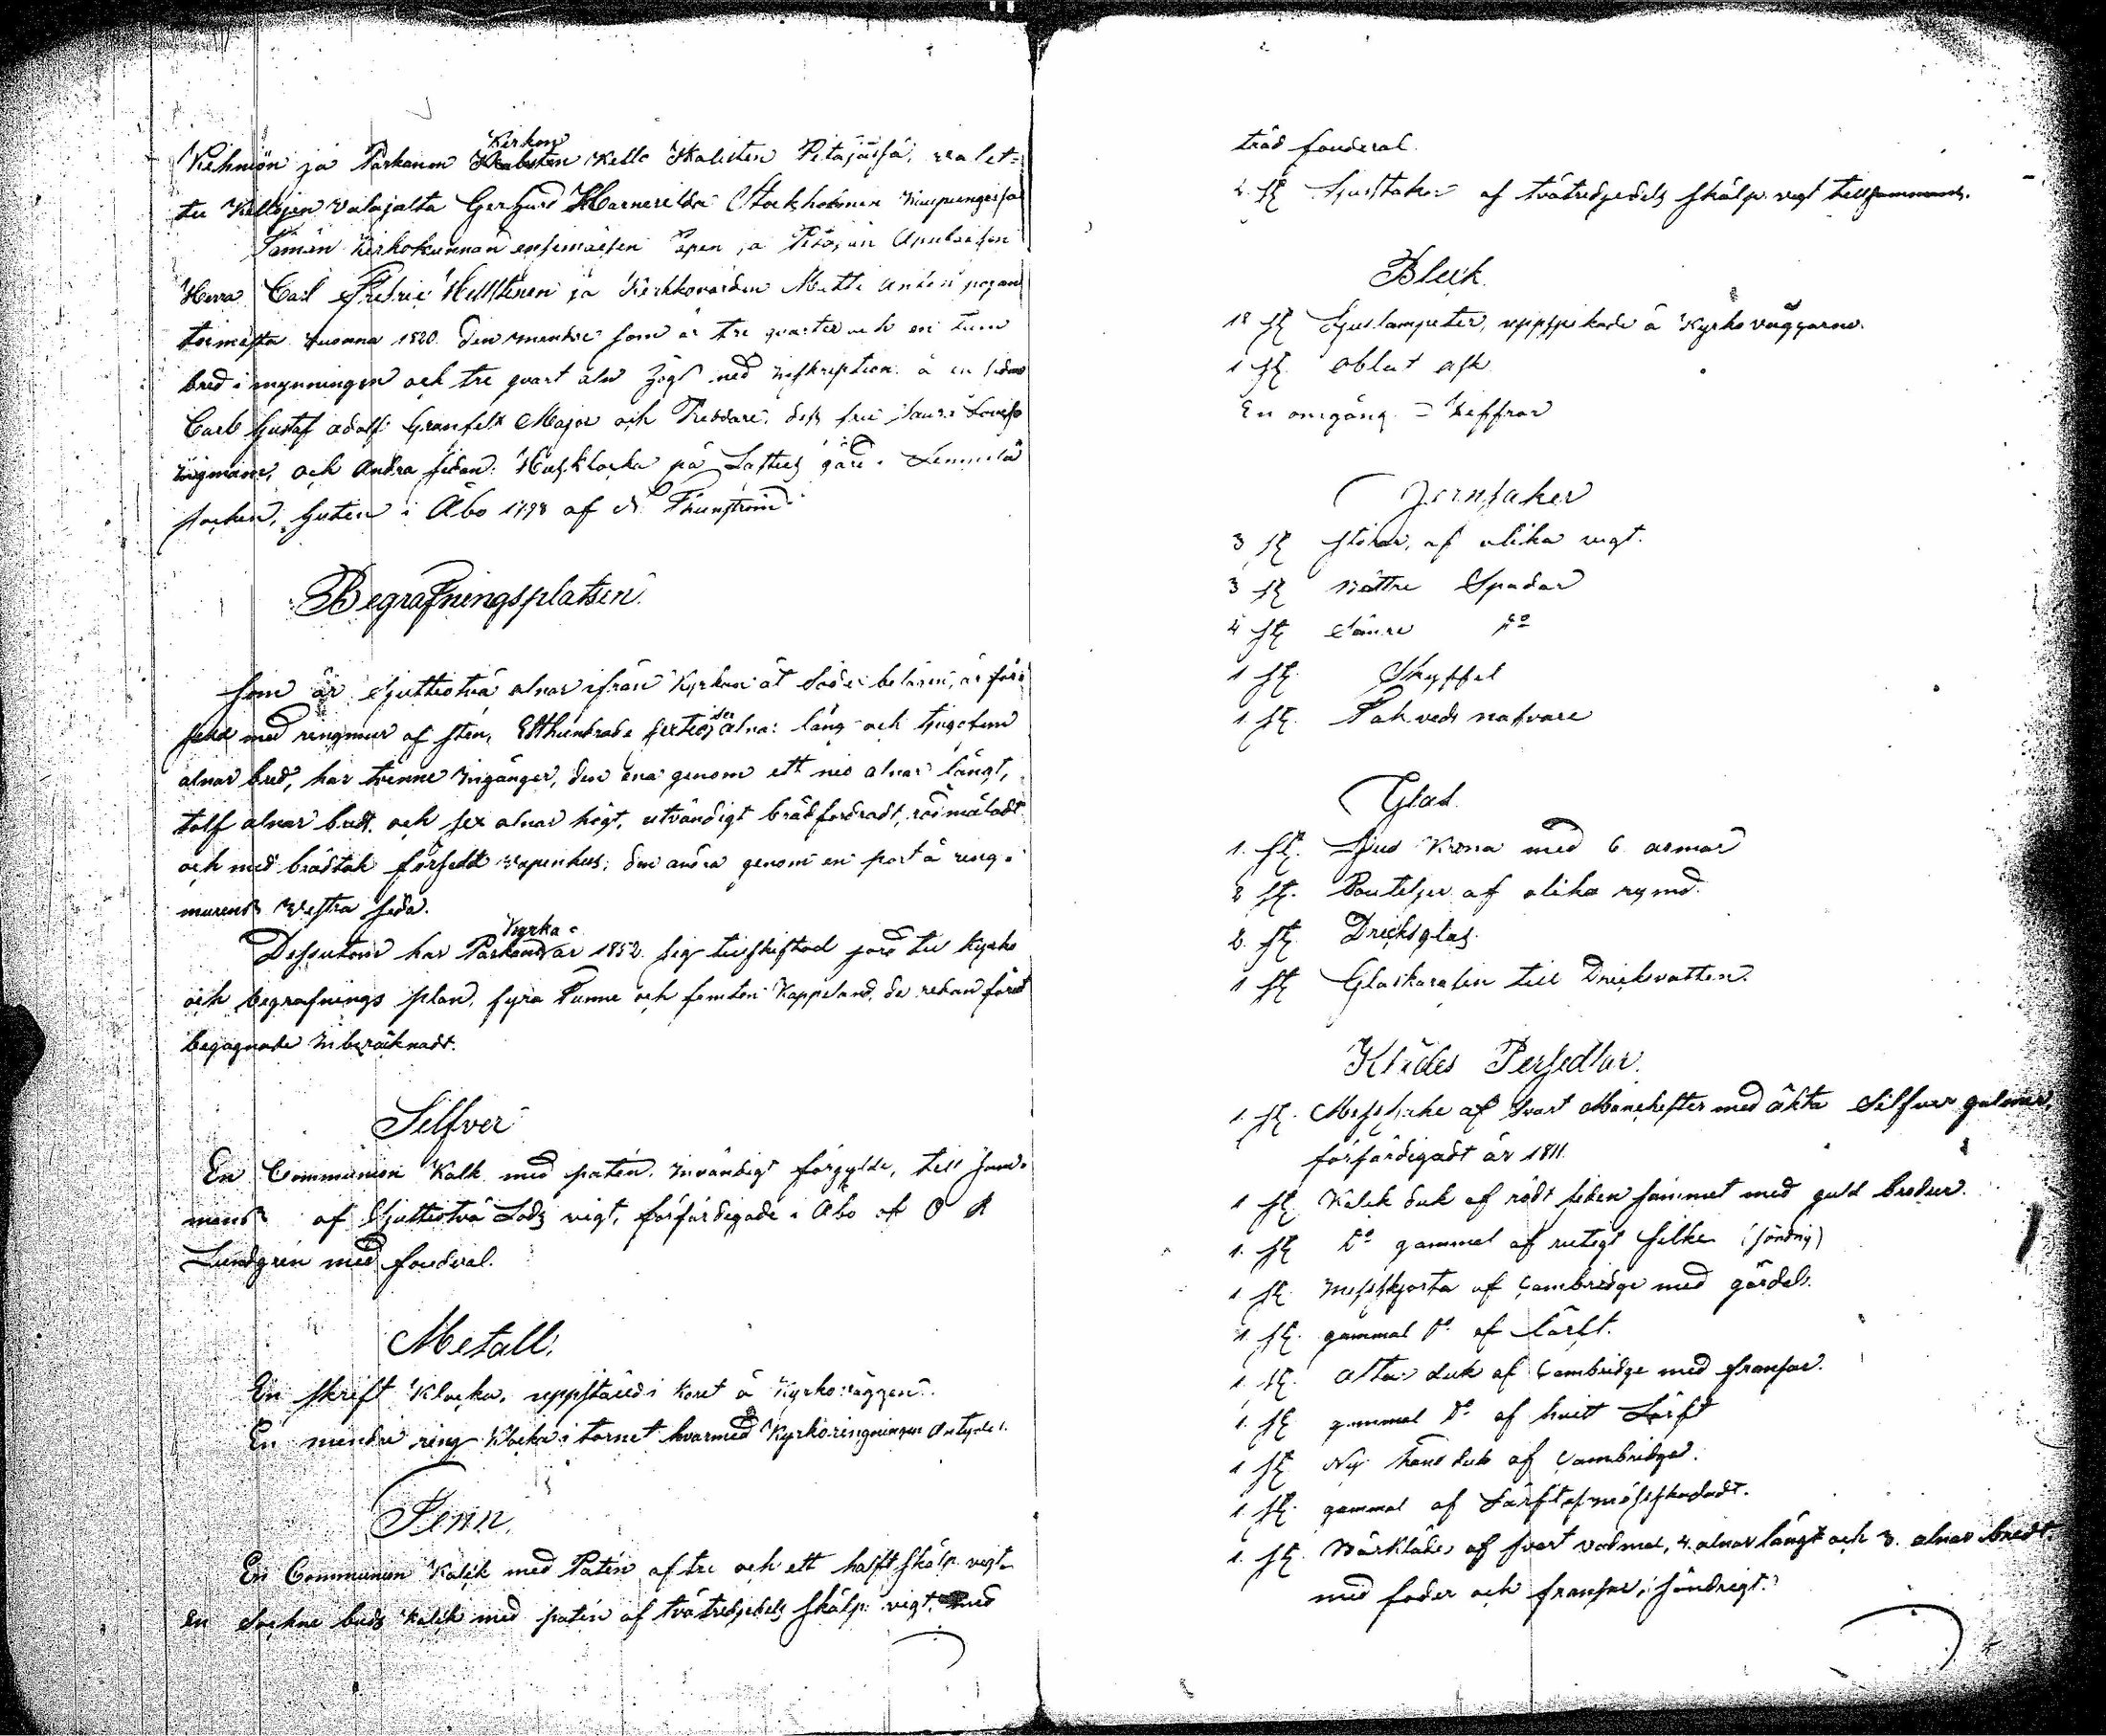 Kirkon
Kihniön ja Parkanon Kello Pitäjäsä, valet=
tu Kellojen valajalta Gerhard Hornerilda Stockholmin Kaupungisa
Tämän Kirkokunnan ensimäisen Papin ja Pitäjän Apulaisen
Herra Carl Fredric Hellstenin ja Kirkkovärdin Matti
toimesta vuonna 1820. Den mindre som är tre qvarter och en tum
bred i mynningen och tre qvart aln hög med inskription å en sidan
Carl Gustaf Adolf Granfelt Major och Riddare, dess fru Lovisa
och Andra sidan: Husklocka på gård i Lemmilä
socken, Guten i Åbo 1798 af Thunström
Begrafningsplatsen.
som är Sjuttiotvå alnar ifrån Kyrkan åt Söder belägen, är för=
sedd med ringmur af sten, Etthundrade sextio sex alnar lång och tjugofem
alnar bred, har tvenne ingånger, den ena genom ett nio alnar långt,
tolf alnar bredt och sex alnar högt, utvändigt brädfordradt, rödmåladt
och med brädtak försedt vapenhus; den andra genom en port å ring=
murens Vestra sida.
Kyrka
Dessutom har Parkano år 1852 sig tillskiftad jord till Kyrko
och begrafnings plan, fyra Tunne och femton Kappeland, de redan förut
begagnade inberäknadt.
Silfver
En Communion Kalk med patén, invändigt förgylde, till sam=
mans af Sjuttiotvå Lods vigt, förfärdigade i Åbo af O R
Lundgren med fouderal.
Metall.
En skrift Klocka, uppställd i Koret å Kyrkoväggen.
En mindre ring Klocka i tornet hvarmed Kyrkoringningen Antydes.
Tenn.
En Communion Kalck med Patén af tre och ett halft skålp. vigt
En Sockne buds Kalck med patén af tvåtredjedels skålp: vigt, med
träd fouderal.
2 st Ljusstakar af tvåtredjedels skålp. vigt tillsammans.
Bleck.
18 st Ljuslampeter, uppspikade å Kyrkoväggarne.
1 st. Oblat ask
En omgång Ziffror
Jernsaker
3 st störar, af olika vigt.
3 st bättre Spadar
4 st sämre do
1 st. Skyffel
1 st. Takveds nafvare
Glas.
1. st. Ljus Krona med 6 armar
2 st. Bouteljer af olika rymd.
2. st. Dricksglas.
1 st Glaskarafin till Dricksvatten.
Klädes Persedlar.
1. st. Messhake af svart Manchester med äkta Silfver galoner,
förfärdigadt år 1811.
1 st. Kalck duk af rödt siden sammet med guld brodeur.
1. st do gammal af rutigt silke (söndrig)
1 st. Messskjorta af Cambridge med gördel.
1. st. gammal do. af lärft.
1. st. Altar duk af Cambridge med fransar.
1. st gammal do af hvitt Lärft
1 st. Ny hand duk af Cambridge.
1. st. gammal af Lärft
1. st. Bårkläde af svart vadmal, 4. alnar långt och 3. alnar bredt
med foder och fransar, söndrigt.